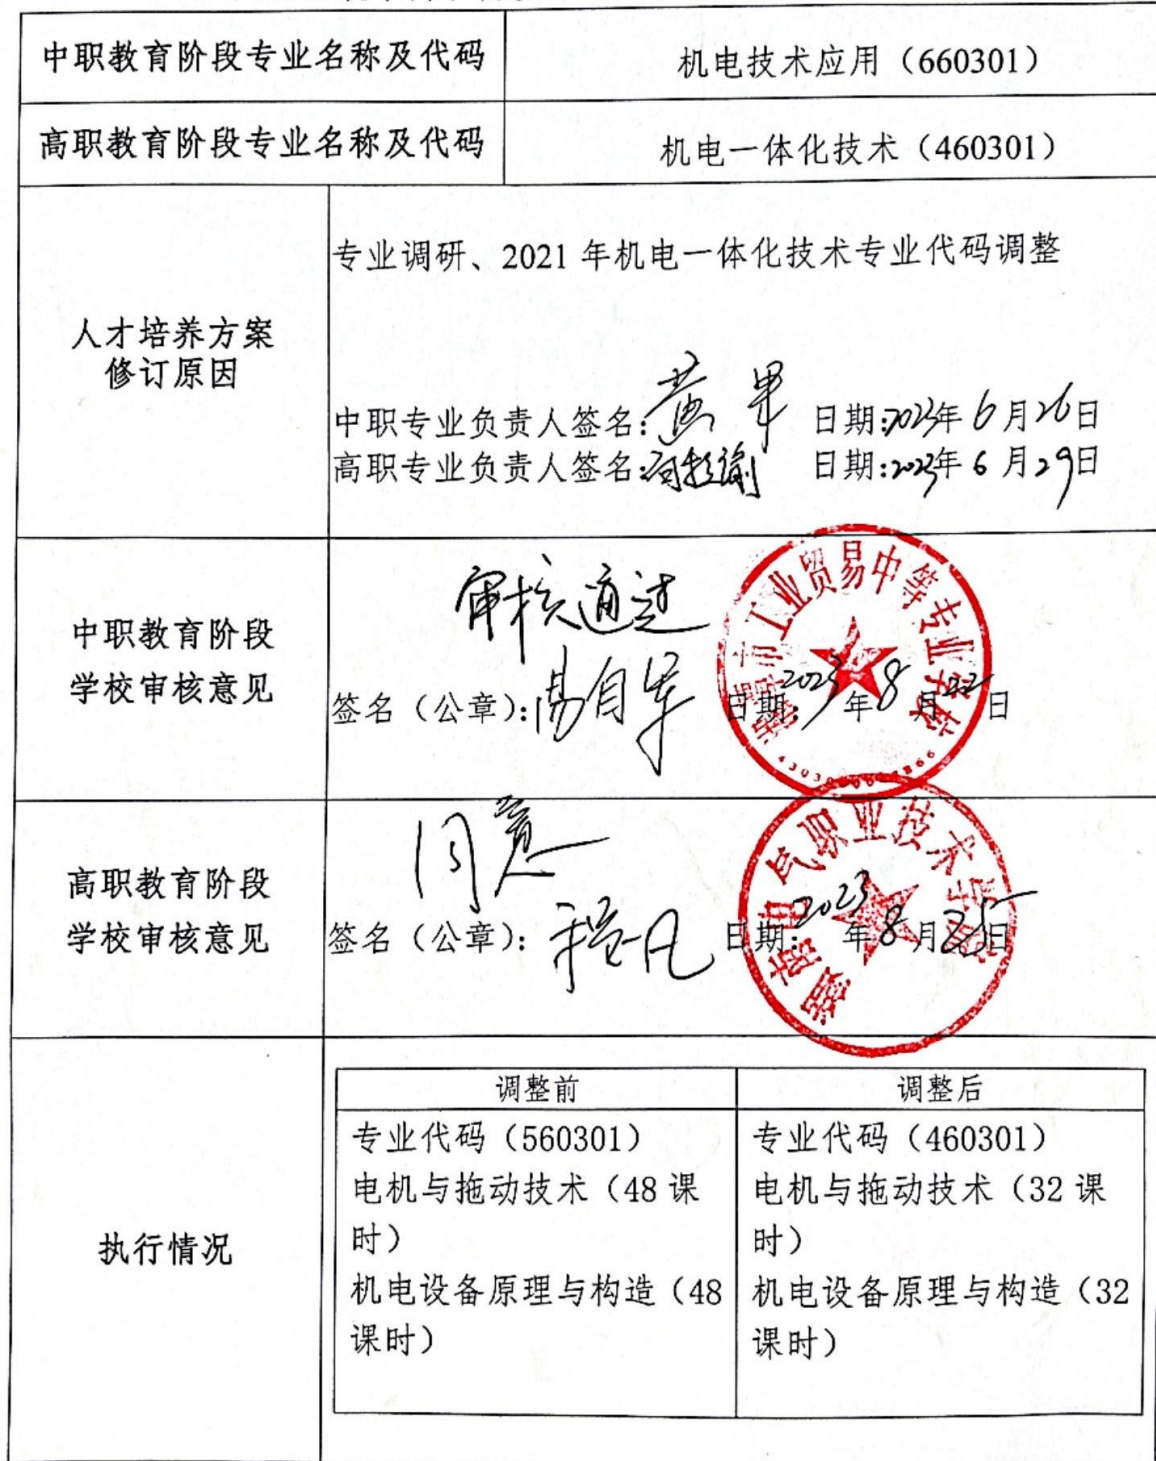 中职教育阶段专业名称及代码
机电技术应用（660301）
高职教育阶段专业名称及代码
机电一体化技术（460301）
人才培养方案
修订原因
专业调研、2021 年机电一体化技术专业代码调整
中职专业负责人签名:黄军 日期:2023年6月26日
高职专业负责人签名: 日期:2023年6月29日
中职教育阶段
学校审核意见
审核通过
签名（公章）:易自军 日期:2023年8月22日
市工业贸易中等专业学校
高职教育阶段
学校审核意见
同意
签名（公章）: 日期:2023年8月25日
湖南电气职业技术学院
执行情况
调整前
专业代码（560301）
电机与拖动技术（48 课
时）
机电设备原理与构造（48
课时）
调整后
专业代码（460301）
电机与拖动技术（32 课
时）
机电设备原理与构造（32
课时）